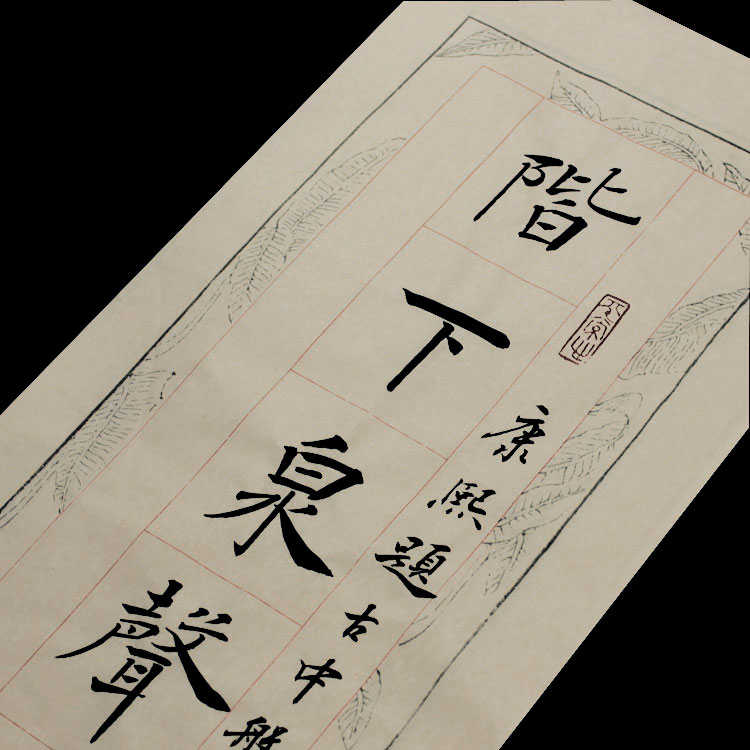 階下泉聲
康熙題古中盤